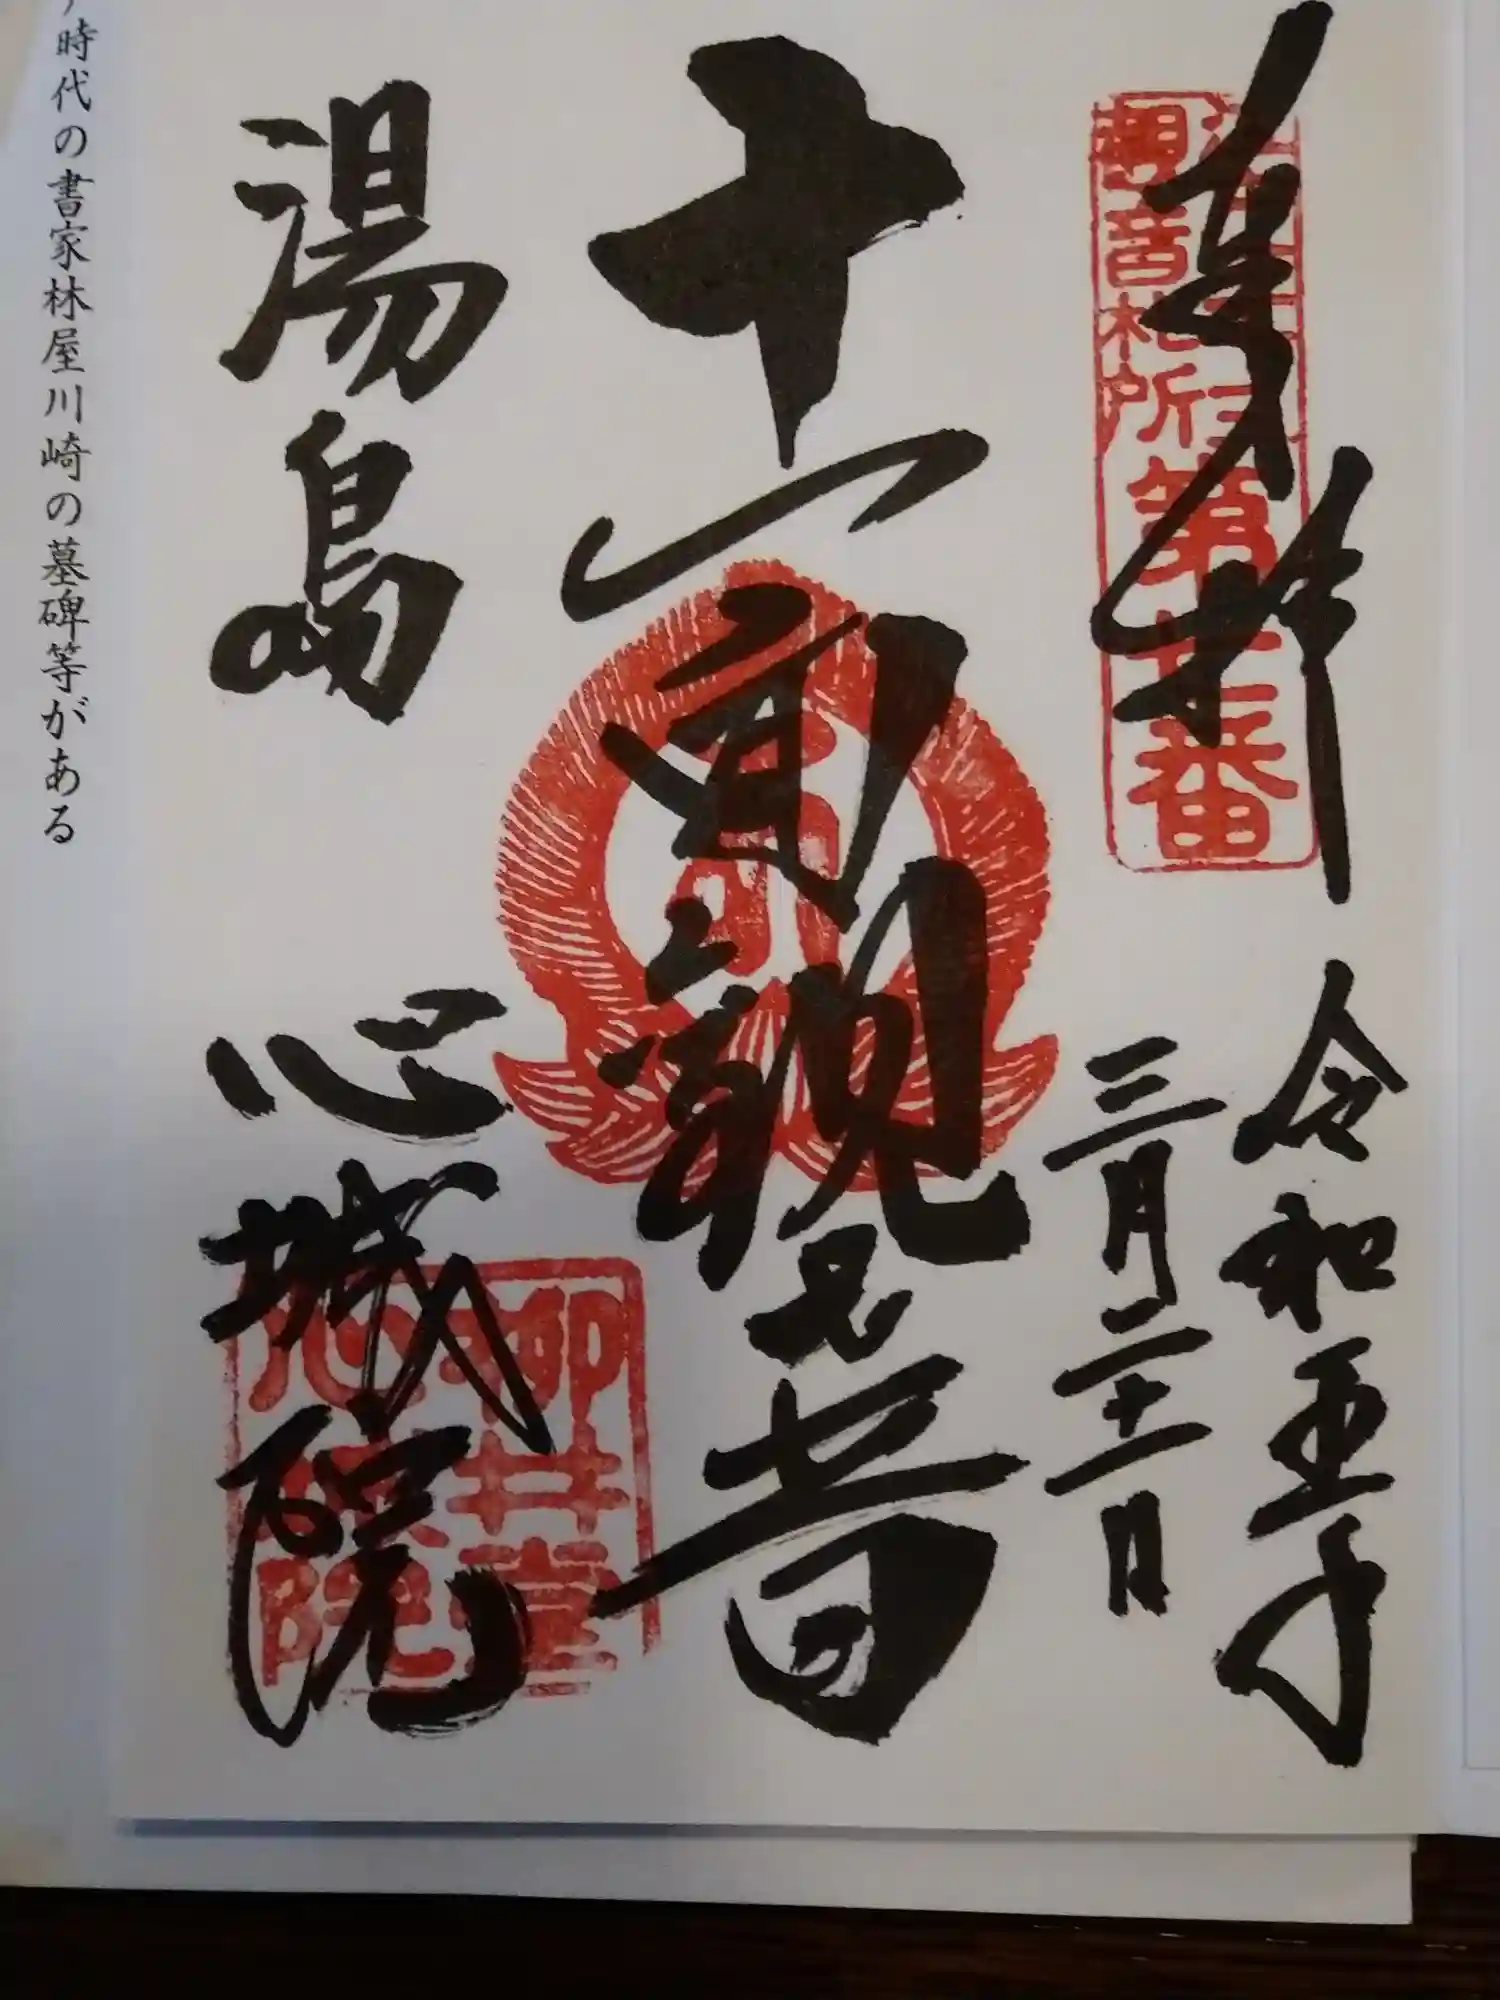 奉拝
令和五年
三月二十一日
江戸三十三
観音札所第七番
十一面観世音
湯島
心城院
柳井堂
心城院
時代の書家林屋川崎の墓碑等がある